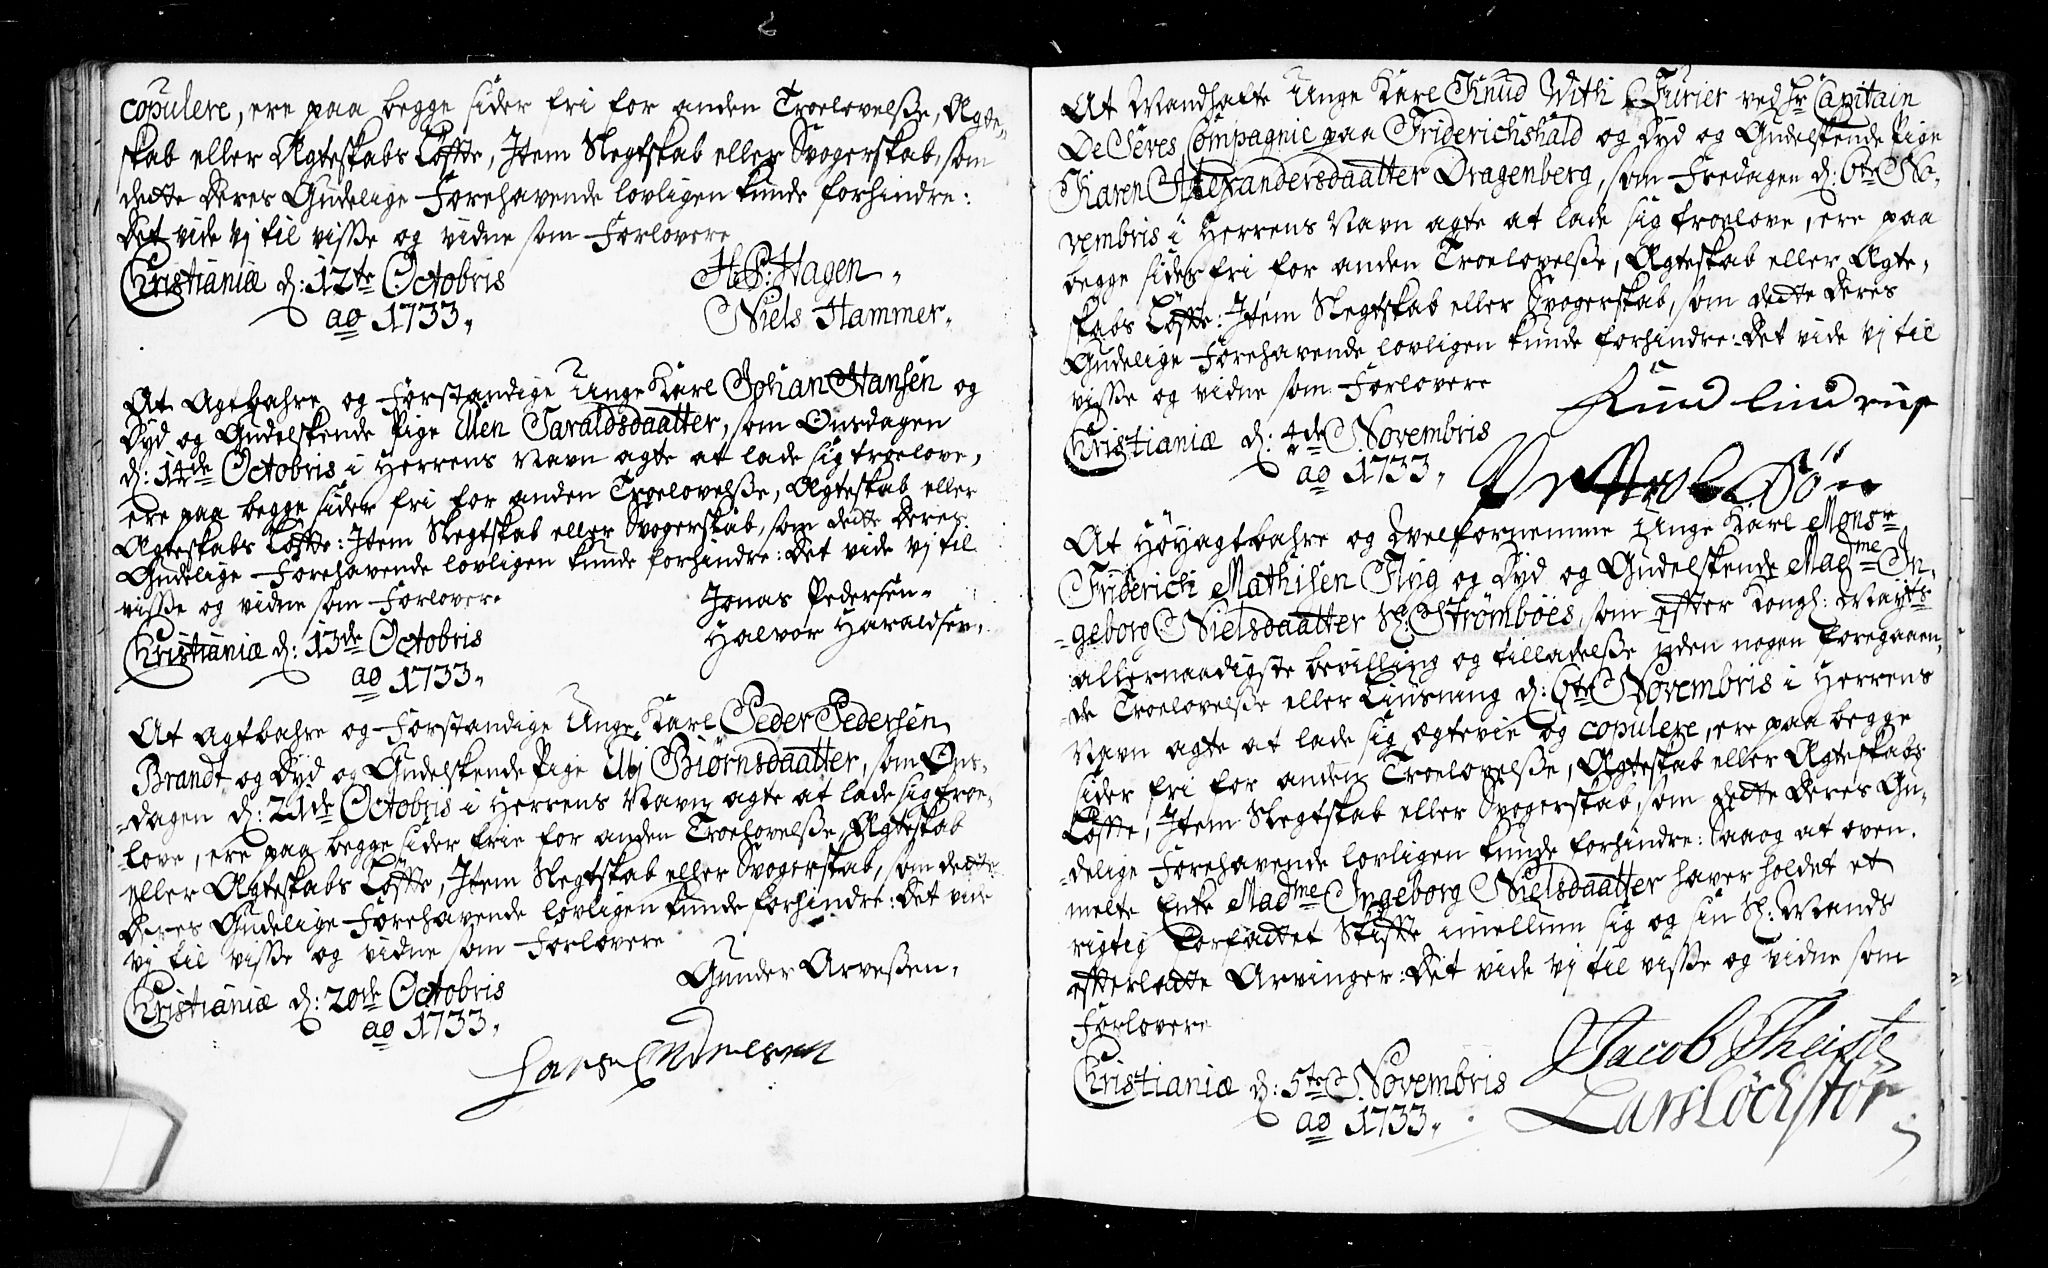 copulere, ere paa begge sider fri for anden Troelovelsse, Ægte-
skab eller Ægteskabs Løffte, Item Slegtskab eller Svogerskab, som
dette deres Gudelige Forehavende lovligen kunde forhindre:
Det vide vj til visse og vidne som Forlovere
Christianiæ d: 12te Octobris
ao 1733.
H. P. Hagen.
Niels Hammer.
At Agtbahre og Forstandige Unge Karl Johan Hansen og
Dyd og Gudelskende Pige Elen Taraldsdaatter, som Onsdagen
d: 14de Octobris i Herrens Navn agte at lade sig troelove,
ere paa begge sider fri for anden Troelovelsse, Ægteskab eller
Ægteskabs Løffte: Item Slegtskab eller Svogerskab, som dette deres
Gudelige Forehavende lovligen kunde forhindre: Det vide vj til
visse og vidne som Forlovere
Christianiæ d: 13de Octobris
ao 1733.
Jonas Pedersen.
Halvor Haraldsen.
At agtbahre og Forstandige Unge Karl Peder Pedersen
Brandt og Dyd og Gudelskende Pige Elj Biørnsdaatter, som Ons-
-dagen d: 21de Octobris i Herrens Navn agte at lade sig troe-
love, ere paa begge sider frie for anden Troelovelsse, Ægteskab
eller Ægteskabs Løffte, Item Slegtskab eller Svogerskab, som dette
deres Gudelige Forehavende lovligen kunde forhindre: Det vide
vj til visse og vidne som Forlovere
Christianiæ d: 20de Octobris
ao 1733.
Gunder Arvessen.
Lars Endresen
At Mandhafte Unge Karl Knud With Furier ved Hr Capitain
De Seves Compagnie paa Friderichshald og Dyd og Gudelskende Pige
Karen Alexandersdaatter Dragenberg, som Fredagen d: 6te No-
vembris i Herrens Navn agte at lade sig troelove, ere paa
begge sider fri for anden Troelovelsse, Ægteskab eller Ægte-
skabs Løffte: Item Slegtskab eller Svogerskab, som dette deres
Gudelige Forehavende lovligen kunde forhindre: Det vide vj til
visse og vidne som Forlovere
Christianiæ d: 4de Novembris
ao 1733.
At Høyagtbahre og Velfornemme Unge Karl Monsr
Friderich Mathisen Flyg og Dyd og Gudelskende Madme In-
-geborg Nielsdaatter Sl: Strømboes, som efter Kongl: Mayts
allernaadigste bevilling og tilladelsse uden nogen foregaaen-
-de Troelovelsse eller Liusning d: 6te Novembris i Herrens
Navn agte at lade sig ægtevie og copulere, ere paa begge
sider fri for anden Troelovelsse, Ægteskab eller Ægteskabs
Løffte, Item Slegtskab eller Svogerskab, som dette deres Gu-
-delige Forehavende lovligen kunde forhindre: Saa og at oven-
melte Enke Madme Ingeborg Nielsdaatter haver holdet et
rigtig forfattet Skiffte imellum sig og sin Sl: Mands
efterladte Arvinger: Det vide vj til visse og vidne som
Forlovere
Christianiæ d: 5te Novembris
ao 1733.
Jacob Theiste
Lars Løchstør